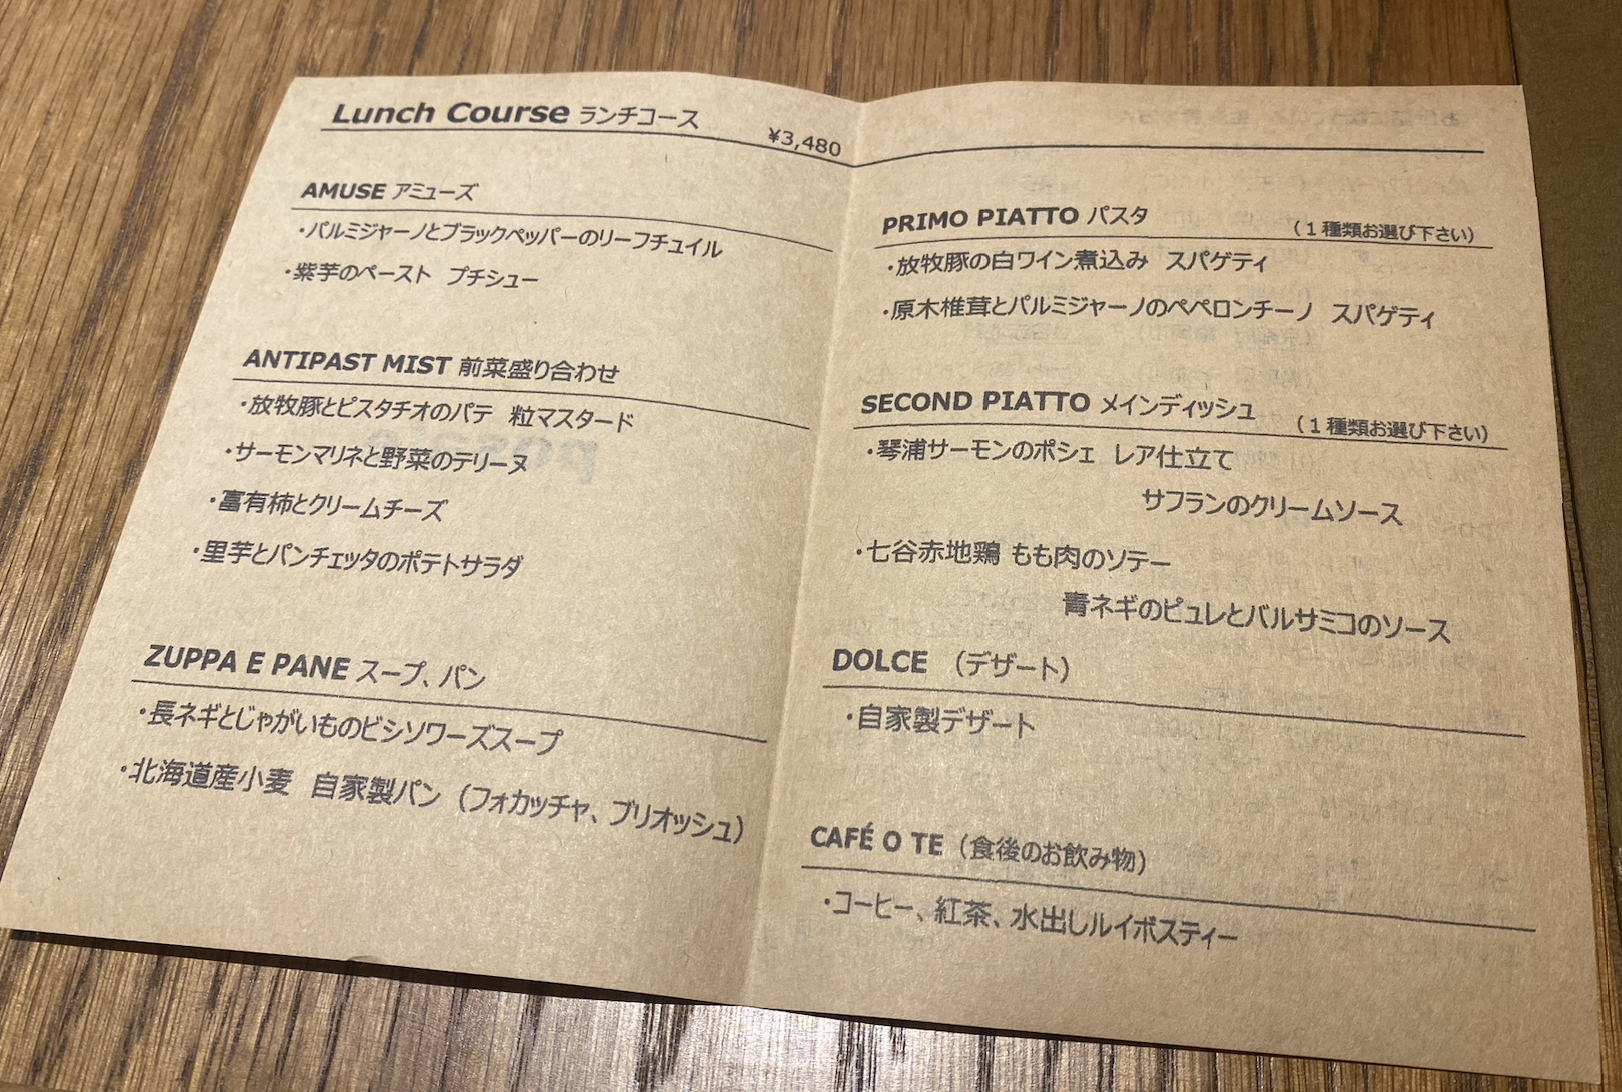 Lunch Course ランチコース
¥3,480
AMUSE アミューズ
・パルミジャーノとブラックペッパーのリーフチュイル
・紫芋のペースト プチシュー
ANTIPAST MIST 前菜盛り合わせ
・放牧豚とピスタチオのパテ 粒マスタード
・サーモンマリネと野菜のテリーヌ
・富有柿とクリームチーズ
・里芋とパンチェッタのポテトサラダ
ZUPPA E PANE スープ、パン
・長ネギとじゃがいものビシソワーズスープ
・北海道産小麦 自家製パン（フォカッチャ、ブリオッシュ）
PRIMO PIATTO パスタ （１種類お選び下さい）
・放牧豚の白ワイン煮込み スパゲティ
・原木椎茸とパルミジャーノのペペロンチーノ スパゲティ
SECOND PIATTO メインディッシュ （１種類お選び下さい）
・琴浦サーモンのポシェ レア仕立て
サフランのクリームソース
・七谷赤地鶏 もも肉のソテー
青ネギのピュレとバルサミコのソース
DOLCE （デザート）
・自家製デザート
CAFÉ O TE（食後のお飲み物）
・コーヒー、紅茶、水出しルイボスティー